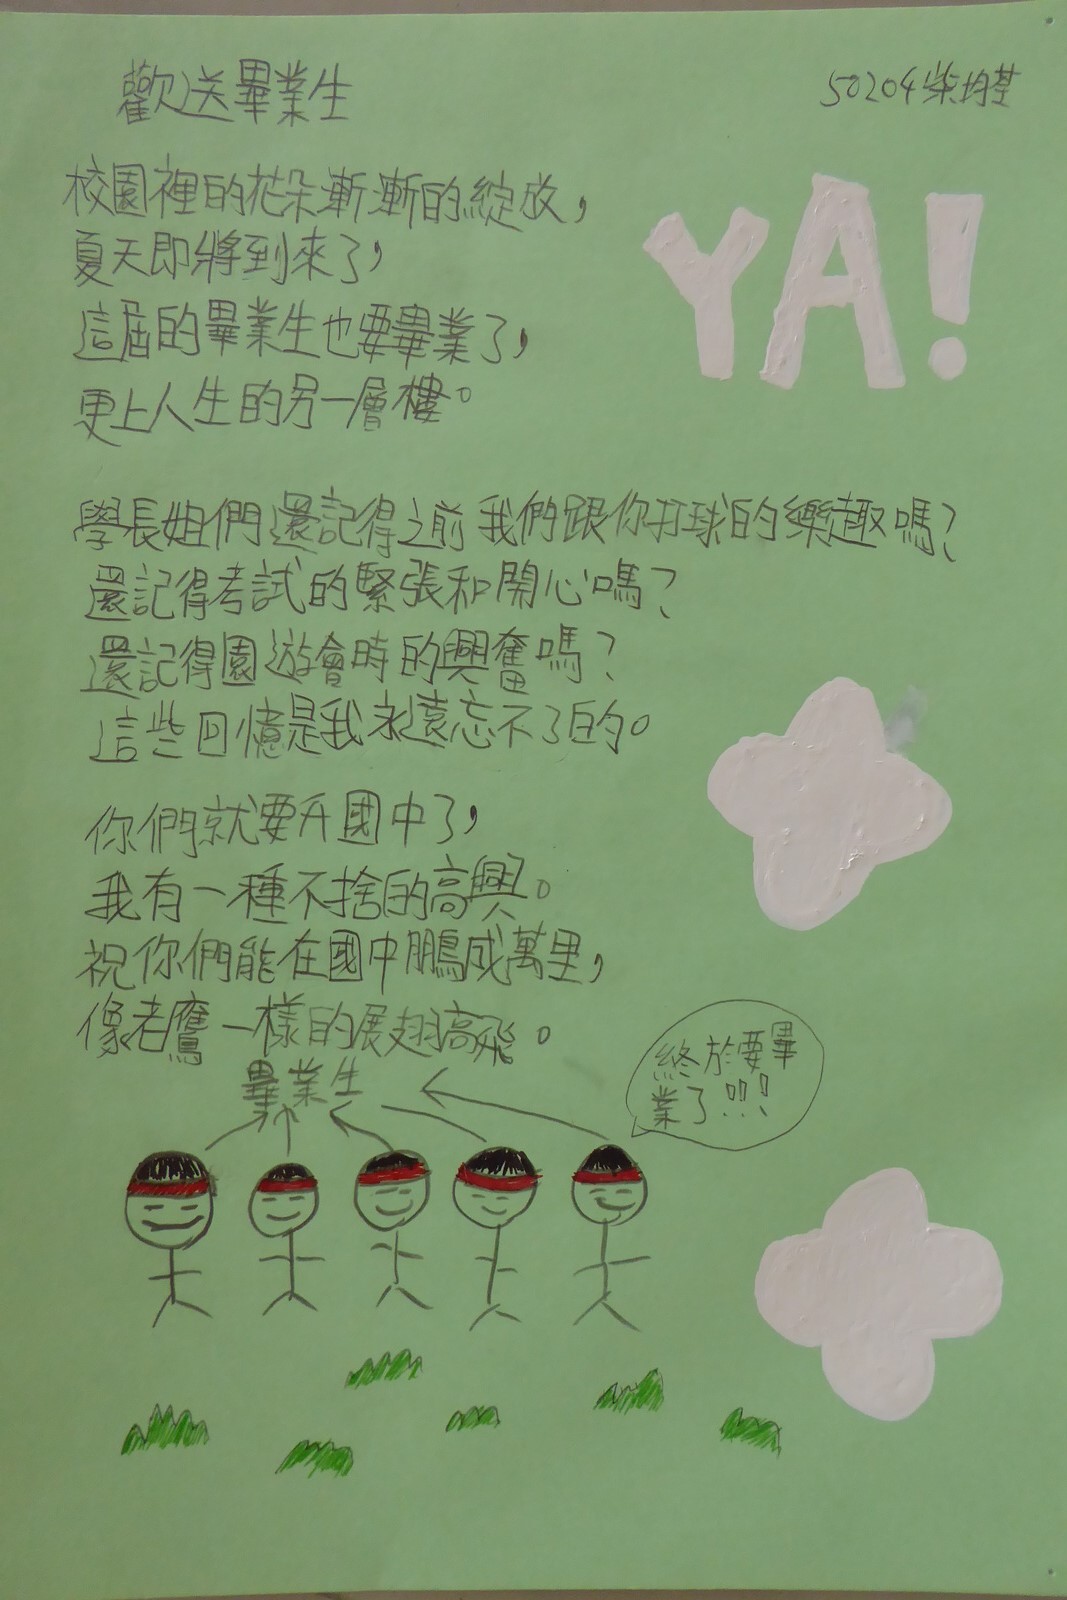 歡送畢業生
50204柴均荃
YA!
校園裡的花朵漸漸的綻放,
夏天即將到來了,
這屆的畢業生也要畢業了,
更上人生的另一層樓。
學長姐們還記得之前我們跟你打球的樂趣嗎?
還記得考試的緊張和開心嗎?
還記得園遊會時的興奮嗎?
這些回憶是我永遠忘不了的。
你們就要升國中了,
我有一種不捨的高興。
祝你們能在國中鵬成萬里,
像老鷹一樣的展翅高飛。
畢業生
終於要畢
業了!!!